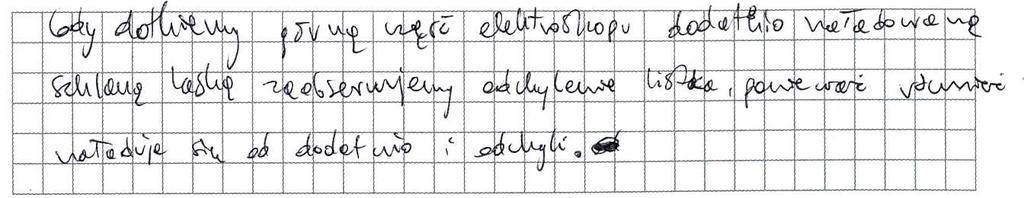 Gdy dotkniemy górną część elektroskopu dodatnio naładowaną
szklaną laską zaobserwujemy odchylenie listka, ponieważ również
naładuje się od dodatnio i odchyli.